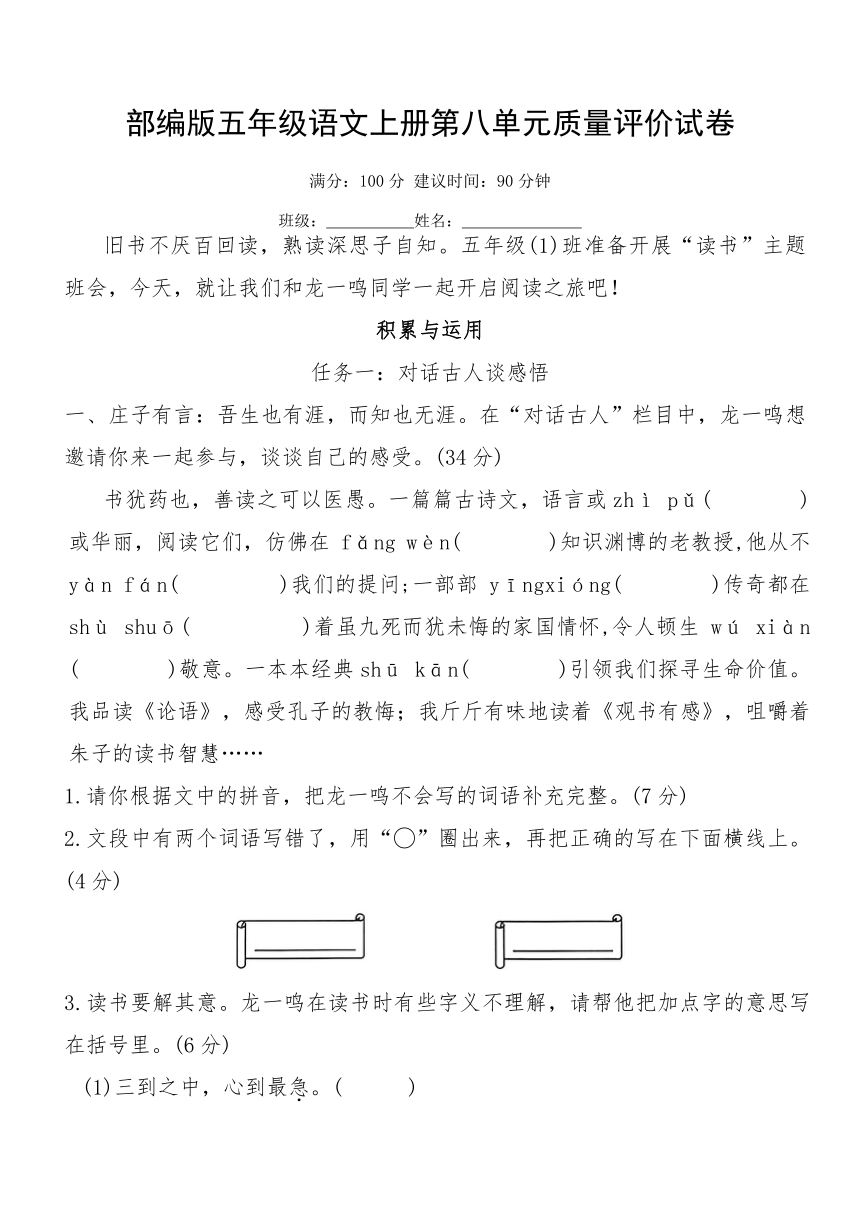 部编版五年级语文上册第八单元质量评价试卷
满分：100分 建议时间：90分钟
班级：____________姓名：________________
旧书不厌百回读，熟读深思子自知。五年级(1)班准备开展“读书”主题
班会，今天，就让我们和龙一鸣同学一起开启阅读之旅吧！
积累与运用
任务一：对话古人谈感悟
一、庄子有言：吾生也有涯，而知也无涯。在“对话古人”栏目中，龙一鸣想
邀请你来一起参与，谈谈自己的感受。(34分)
书犹药也，善读之可以医愚。一篇篇古诗文，语言或zhì pǔ(        )
或华丽，阅读它们，仿佛在 fǎng wèn(        )知识渊博的老教授,他从不
yàn fán(        )我们的提问;一部部 yīngxióng(        )传奇都在
shù shuō(        )着虽九死而犹未悔的家国情怀,令人顿生 wú xiàn
(        )敬意。一本本经典shū kān(        )引领我们探寻生命价值。
我品读《论语》，感受孔子的教悔；我斤斤有味地读着《观书有感》，咀嚼着
朱子的读书智慧……
1.请你根据文中的拼音，把龙一鸣不会写的词语补充完整。(7分)
2.文段中有两个词语写错了，用“○”圈出来，再把正确的写在下面横线上。
(4分)
3.读书要解其意。龙一鸣在读书时有些字义不理解，请帮他把加点字的意思写
在括号里。(6分)
(1)三到之中，心到最急。(      )